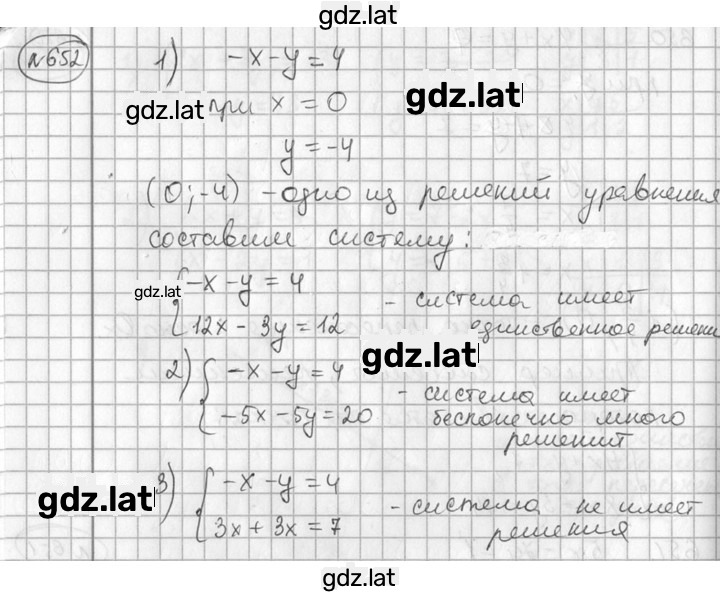 gdz.lat
№652
1) -x-y=4
gdz.lat при x=0 gdz.lat
y=-4
(0;-4) - одно из решений уравнения
составим систему:
gdz.lat
{-x-y=4
12x-3y=12
- система имеет
единственное решени
gdz.lat
2) {-x-y=4
-5x-5y=20
- система имеет
бесконечно много
решений
gdz.lat
3) {-x-y=4
3x+3x=7
- система не имеет
решения
gdz.lat